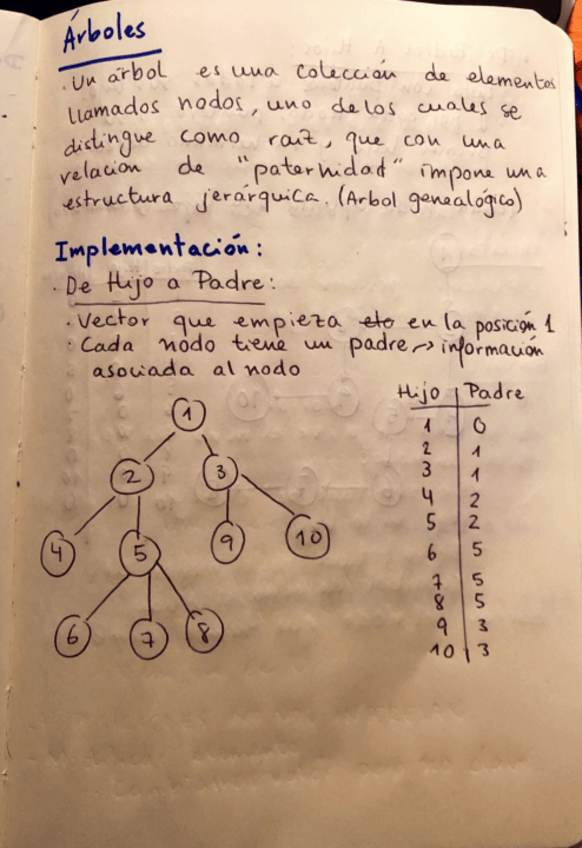 Árboles
. Un árbol es una colección de elementos
llamados nodos, uno de los cuales se
distingue como raiz, que con una
relación de "paternidad" impone una
estructura jerárquica. (Arbol genealógico)
Implementación:
. De Hijo a Padre:
. Vector que empieza eto en la posición 1
: Cada nodo tiene un padre → información
asociada al nodo
Hijo | Padre
1 0
2 1
3 1
4 2
5 2
6 5
7 5
8 5
9 3
10 3
1
2 3
4 5 9 10
6 7 8